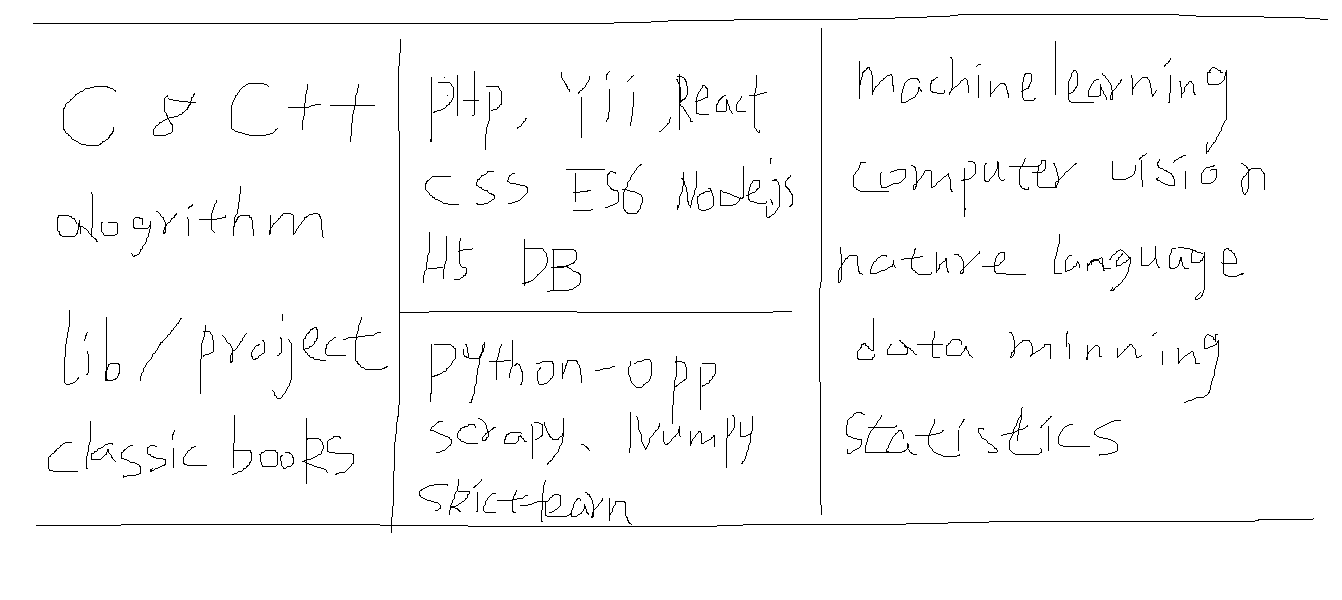 C & C++
alogrithm
lib/project
classic books
PHP, Yii, React
CSS ES6 Nodejs
H5 DB
python-opp
scrapy、Numpy
machine learning
computer vision
nature language
data minning
statistics